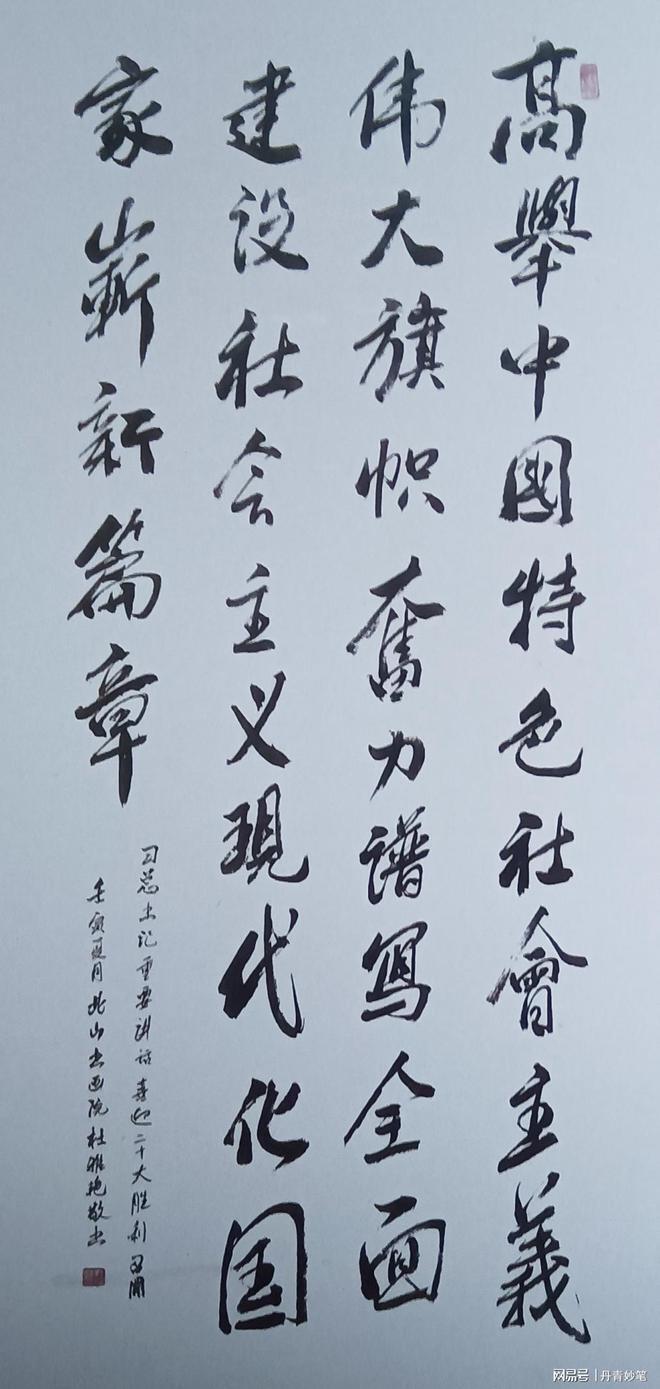 高舉中國特色社會主義
伟大旗帜奮力谱寫全面
建设社会主义現代化国
家嶄新篇章
习总书记重要讲话喜迎二十大胜利召開
壬寅夏月北山书画院杜雅艳敬书
网易号 | 丹青妙笔